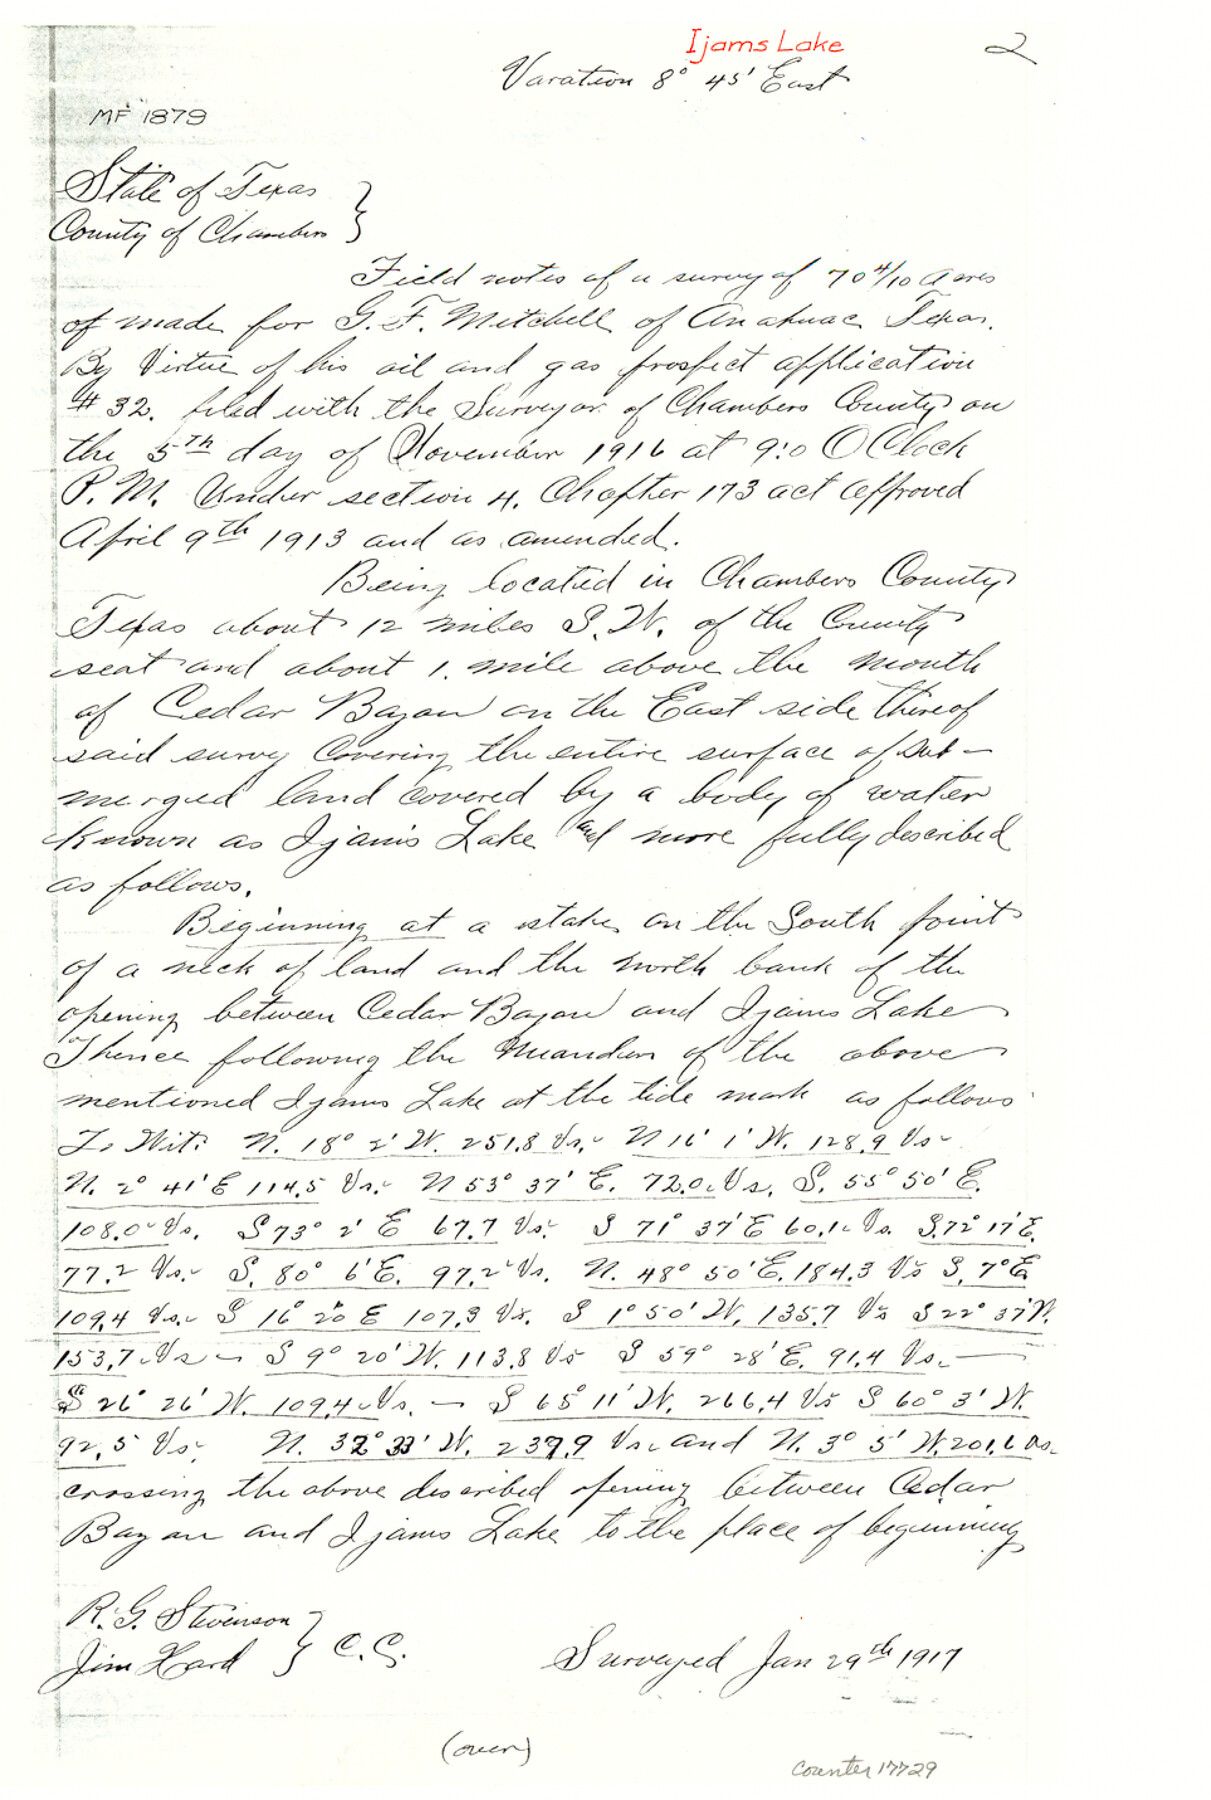 Ijams Lake
2
Varation 8° 45' East
MF 1879
State of Texas
County of Chambers }
Field notes of a survey of 70 4/10 Acres
of made for G. F. Mitchell of Anahuac Texas.
By Virtue of his oil and gas prospect application
# 32. filed with the Surveyor of Chambers County on
the 5th day of November 1916 at 9:0 O Clock
P. M. Under section 4. Chapter 173 act approved
April 9th 1913 and as amended.
Being located in Chambers County
Texas about 12 miles S. W. of the County
seat and about 1. mile above the mouth
of Cedar Bayou on the East side thereof
said survy Covering the entire surface of sub-
merged land covered by a body of water
known as Ijams Lake and more fully described
as follows.
Beginning at a stake on the South point
of a neck of land and the north bank of the
opening between Cedar Bayou and Ijams Lake
Thence following the Meanders of the above
mentioned Ijams Lake at the tide mark as follows
To Wit: N. 18° 2' W. 251.8 Vs. N 16° 1' W. 128.9 Vs
N. 2° 41' E 114.5 Vs. N 53° 37' E. 72.0 Vs. S. 55° 50' E.
108.0 Vs. S 73° 2' E 67.7 Vs. S 71° 37' E 60.1 Vs. S. 72° 17' E.
77.2 Vs. S. 80° 6' E. 97.2 Vs. N. 48° 50' E. 184.3 Vs S. 7° E
109.4 Vs. S 16° 20 E 107.3 Vs. S 1° 50' W. 135.7 Vs S 22° 37' W.
153.7 Vs - S 9° 20' W. 113.8 Vs S 59° 28' E. 91.4 Vs. -
S 26° 26' W. 109.4 Vs. - S 65° 11' W. 266.4 Vs S 60° 3' W.
92.5 Vs. N. 32° 33' W. 239.9 Vs. and N. 3° 5' W. 201.6 Vs.
crossing the above described opening between Cedar
Bayou and Ijams Lake to the place of beginning
R. G. Stevenson
Jim Hard } C. C.
Surveyed Jan 29th 1917
(over)
counter 17729